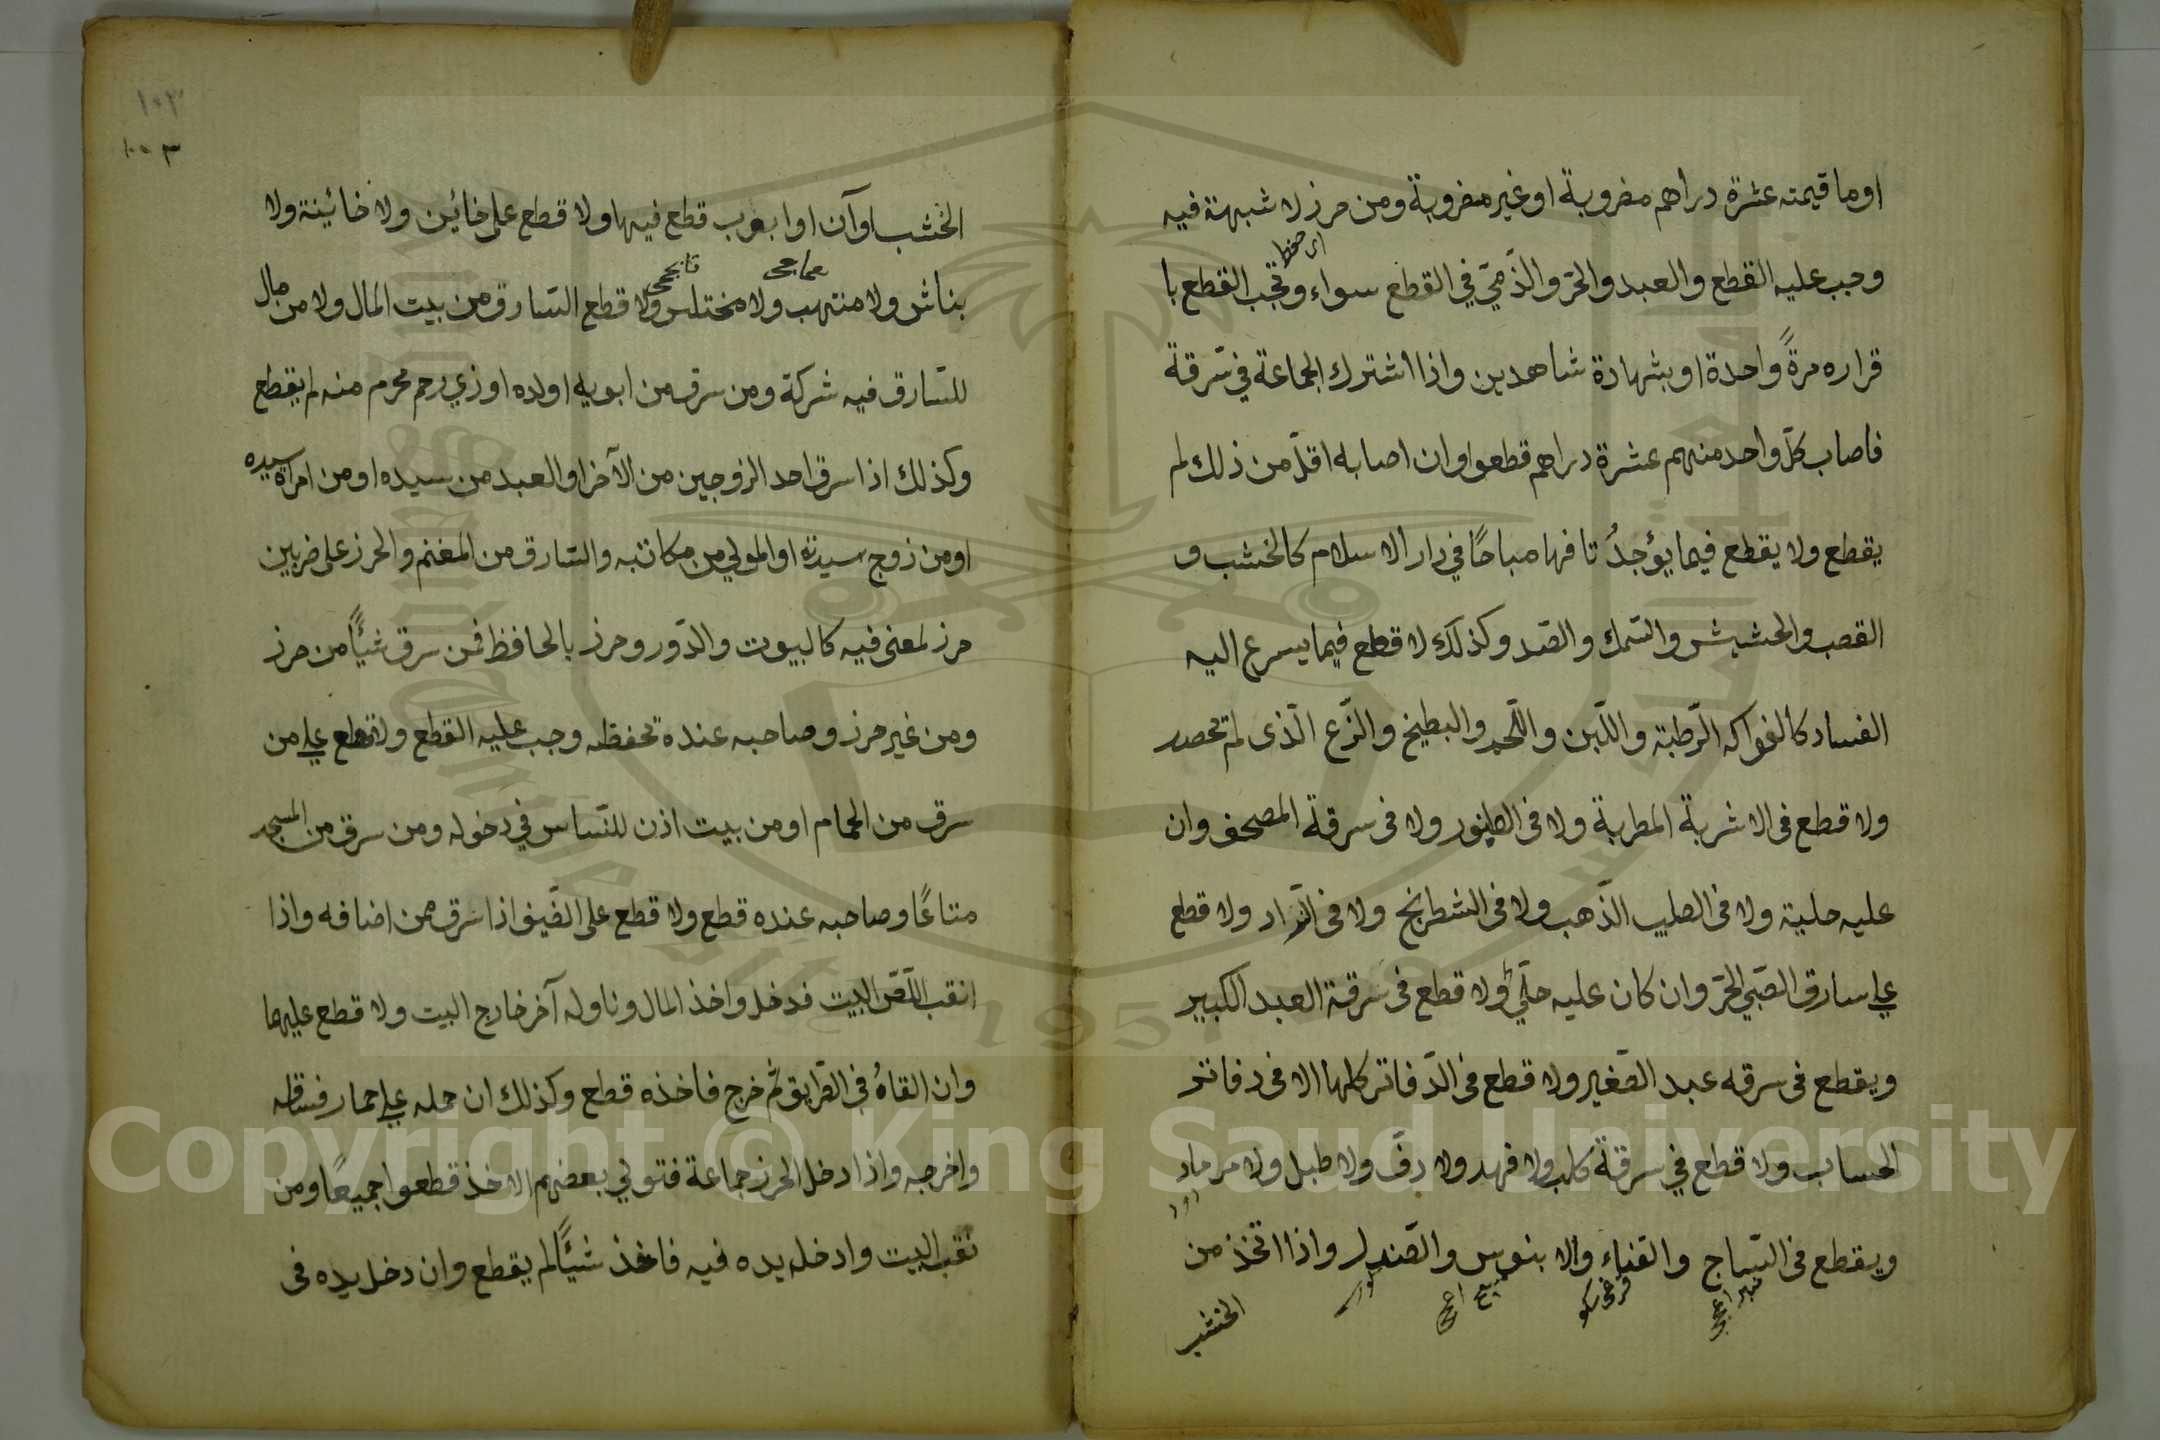 اوما قيمته عشرة دراهم مضروبة اوغير مضروبة ومن حرز لا شبهة فيه
وجب عليه القطع والعبد والحر والذّميّ في القطع سواء وتجب القطع با
قراره مرةً واحدة او بشهادة شاهدين واذا اشترك الجماعة في سّرقة
فاصاب كلّ واحد منهم عشرة دراهم قطعوا وان اصابه اقلّ من ذلك لم
يقطع ولا يقطع فيما يؤجدُ تافها مباحًا في دار الاسلام كالخشب و
القصب والحشيش والسّمك والصّيد وكذلك لا قطع فيما يسرع اليه
الفساد كالفواكه الرّطبة واللّبن واللّحم والبطيخ والزّرع الّذى لم تحصد
ولا قطع فى الاشربة المطربة ولا فى الطنبور ولا فى سرقة المصحف وان
عليه حلية ولا فى الصليب الذّهب ولا فى الشطرنج ولا فى النّراد ولا قطع
على سارق الصّبي الحرّ وان كان عليه حلّي ولا قطع فى سرقة العبد الكبير
ويقطع فى سرقه عبد الصّغير ولا قطع فى الدّفاتر كلها الا فى دفاتر
الحساب ولا قطع في سرقة كلب ولا فهد ولا دفّ ولا طبل ولا مرماد
ويقطع فى السّاج والقناء والا بنوس والصّندل واذا اتّخذ من
الخشب
١٠٣
١٠٣
الخشب اوآن او ابوب قطع فيها ولا قطع على خائن ولا خائينة ولا
بناش ولا منتهب ولا مختلس ولا قطع السّارق من بيت المال ولا من مال
للسّارق فيه شركة ومن سرق من ابويه اولده او ذي رحم محرم منه لم يقطع
وكذلك اذا سرق احد الزوجين من الآخر او العبد من سيده او من امرأة سيده
او من زوج سيدته او المولي من مكاتبه والسّارق من المغنم والحرز على ضربين
حرز لمعنى فيه كالبيوت والدّور وحرز بالحافظ فمن سرق شيأً من حرز
ومن غير حرز وصاحبه عنده تحفظه وجب عليه القطع ولا قطع على من
سرق من الحمام او من بيت اذن للنّاس في دخوله ومن سرق من المسجد
متاعًا وصاحبه عنده قطع ولا قطع على الضّيف اذا سرق ممن اضافه واذا
انقب اللّصّ البيت فدخل واخذ المال وناوله آخر خارج البيت ولا قطع عليهما
وان القاهُ في الطّرايق ثم خرج فاخذه قطع وكذلك ان حمله على حمار فساقه
واخرجه واذا دخل الحرز جماعة فتولي بعضهم الاخذ قطعوا جميعًا ومن
نقب البيت وادخل يده فيه فاخذ شيأً لم يقطع وان دخل يده فى
Copyright © King Saud University
1957